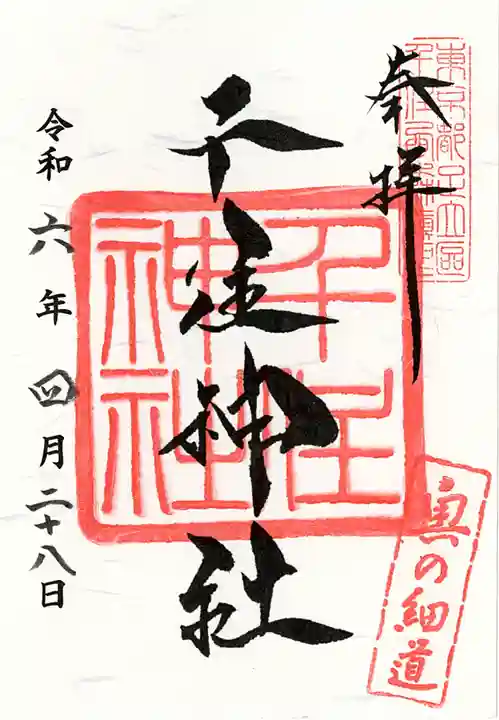 奉拝
東京都足立区
千住宮元町鎮座
千住神社
千住
神社
奥の細道
令和六年四月二十八日